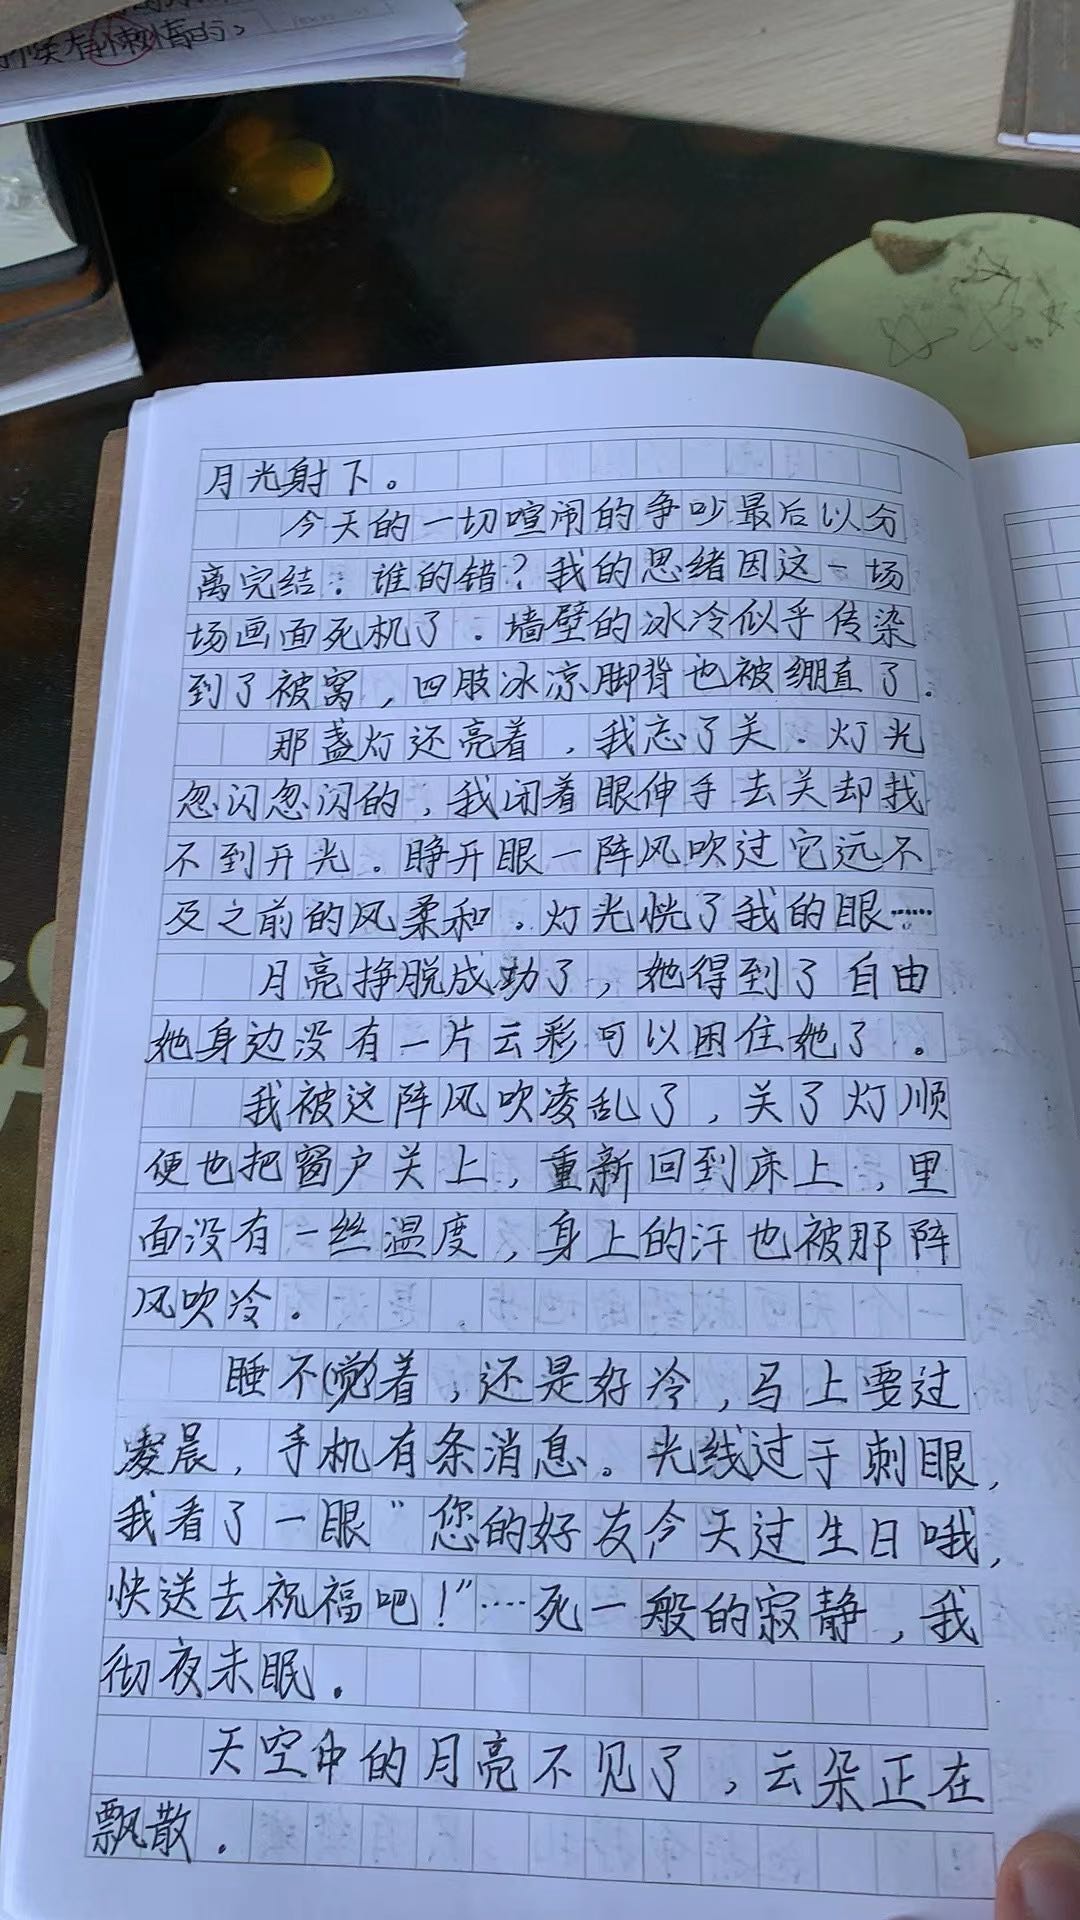 有懒惰的,
月光射下。
今天的一切喧闹的争吵最后以分
离完结:谁的错?我的思绪因这一场
场画面死机了.墙壁的冰冷似乎传染
到了被窝,四肢冰凉脚背也被绷直了.
那盏灯还亮着,我忘了关.灯光
忽闪忽闪的,我闭着眼伸手去关却找
不到开光。睁开眼一阵风吹过它远不
及之前的风柔和.灯光恍了我的眼……
月亮挣脱成功了,她得到了自由
她身边没有一片云彩可以困住她了。
我被这阵风吹凌乱了,关了灯顺
便也把窗户关上,重新回到床上,里
面没有一丝温度,身上的汗也被那阵
风吹冷.
睡不(觉)着,还是好冷,马上要过
凌晨,手机有条消息。光线过于刺眼,
我看了一眼"您的好友今天过生日哦,
快送去祝福吧!"……死一般的寂静,我
彻夜未眠.
天空中的月亮不见了,云朵正在
飘散.